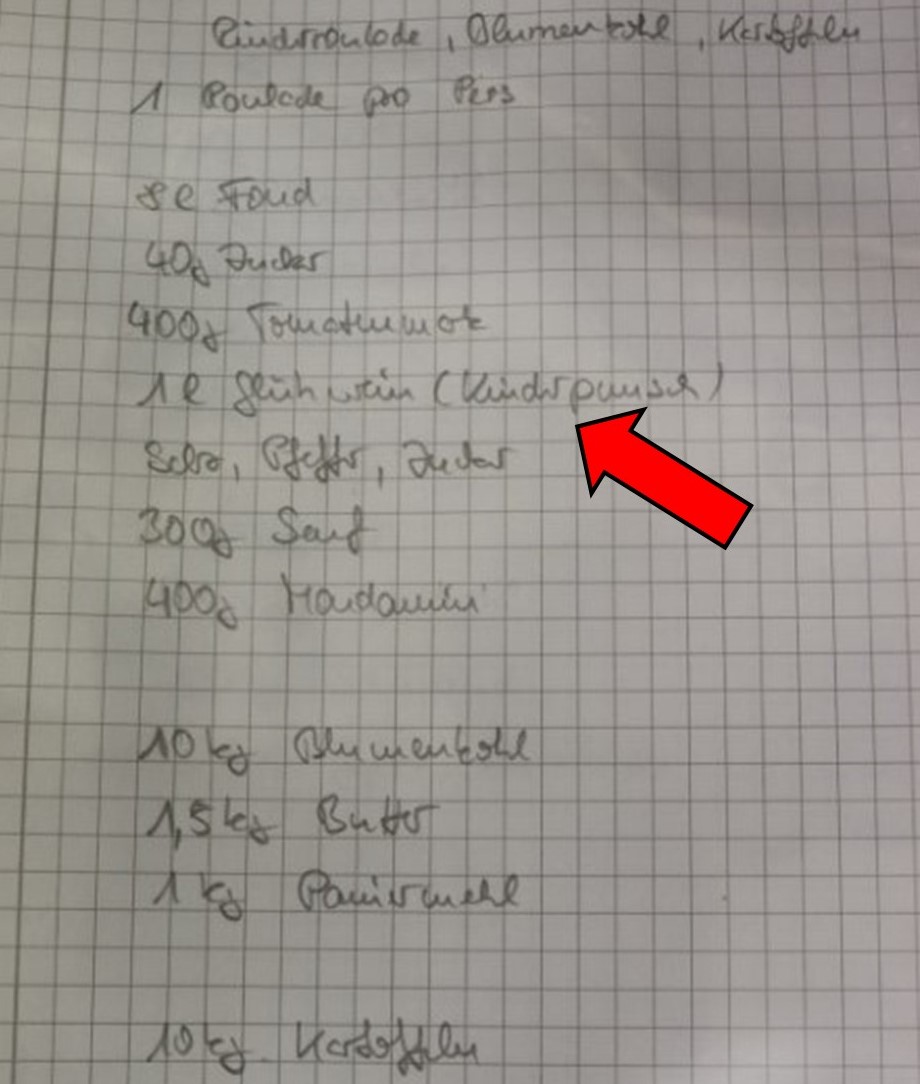 Rinderroulade, Blumenkohl, Kartoffeln
1 Roulade pro Pers
8l Fond
40g Zucker
400g Tomatenmark
1l Glühwein (Kinderpunsch)
Salz, Pfeffer, Zucker
300g Senf
400g Mondamin
10 kg Blumenkohl
1,5 kg Butter
1 kg Paniermehl
10 kg Kartoffeln